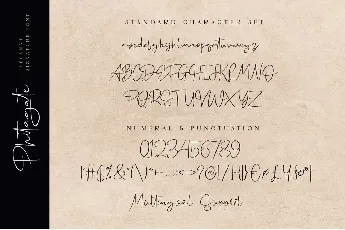 ELEGANT
SIGNATURE FONT
STANDARD CHARACTER SET
abcdefghijklmnopqrstuvwxyz
ABCDEFGHIJKLMNO
PQRSTUVWXYZ
NUMERAL & PUNCTUATION
0123456789
Multilingual Support